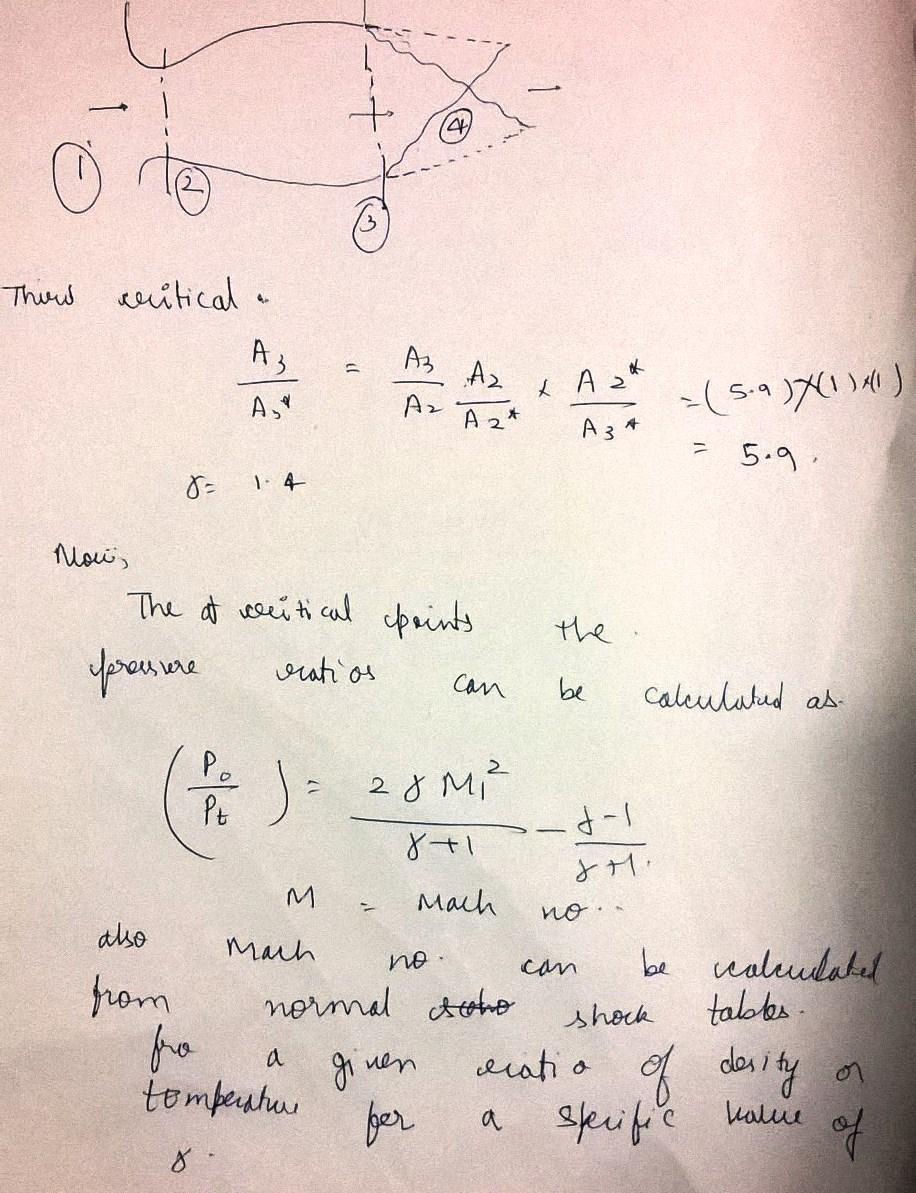 1
2
3
4
Third critical.
A3 / A3* = A3/A2 A2/A2* × A2*/A3* = (5.9)×(1)×(1)
= 5.9.
γ = 1.4
Now,
The at critical points the
pressure ratios can be calculated as
(Po/Pt) = 2γM1²/γ+1 − γ−1/γ+1.
M = Mach no..
also Mach no. can be calculated
from normal shock tables.
fro a given ratio of desity or
temperature for a specific value of
γ.